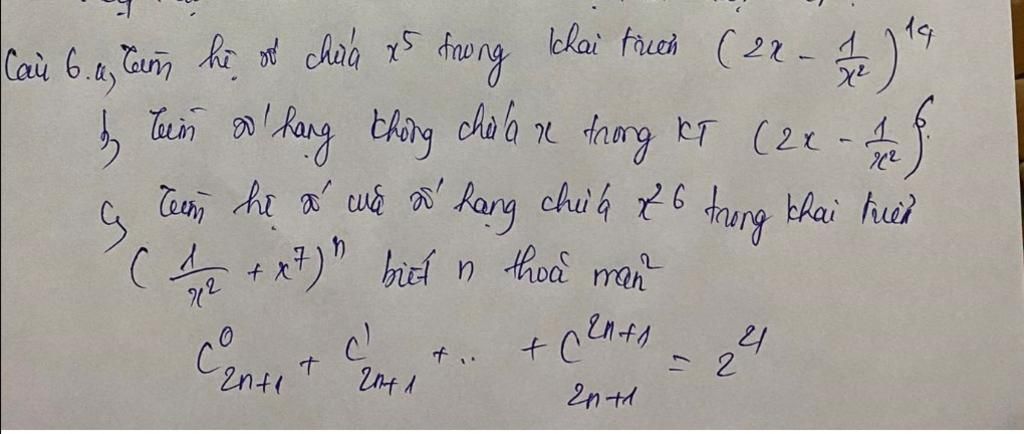 Câu 6. a, Tìm hệ số chứa x^5 trong khai triển (2x - 1/x^2)^14
b, Tìm số hạng không chứa x trong KT (2x - 1/x^2)^6.
c, Tìm hệ số của số hạng chứa x^26 trong khai triển
(1/x^2 + x^7)^n biết n thoả mãn
C^0_{2n+1} + C^1_{2n+1} + .. + C^{2n+1}_{2n+1} = 2^21